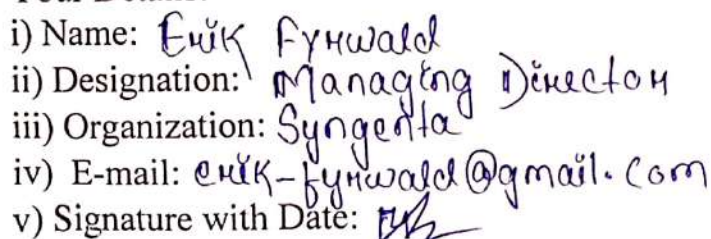 i) Name: Erik Fyrwald
ii) Designation: Managing Director
iii) Organization: Syngenta
iv) E-mail: erik-fyrwald@gmail.com
v) Signature with Date: